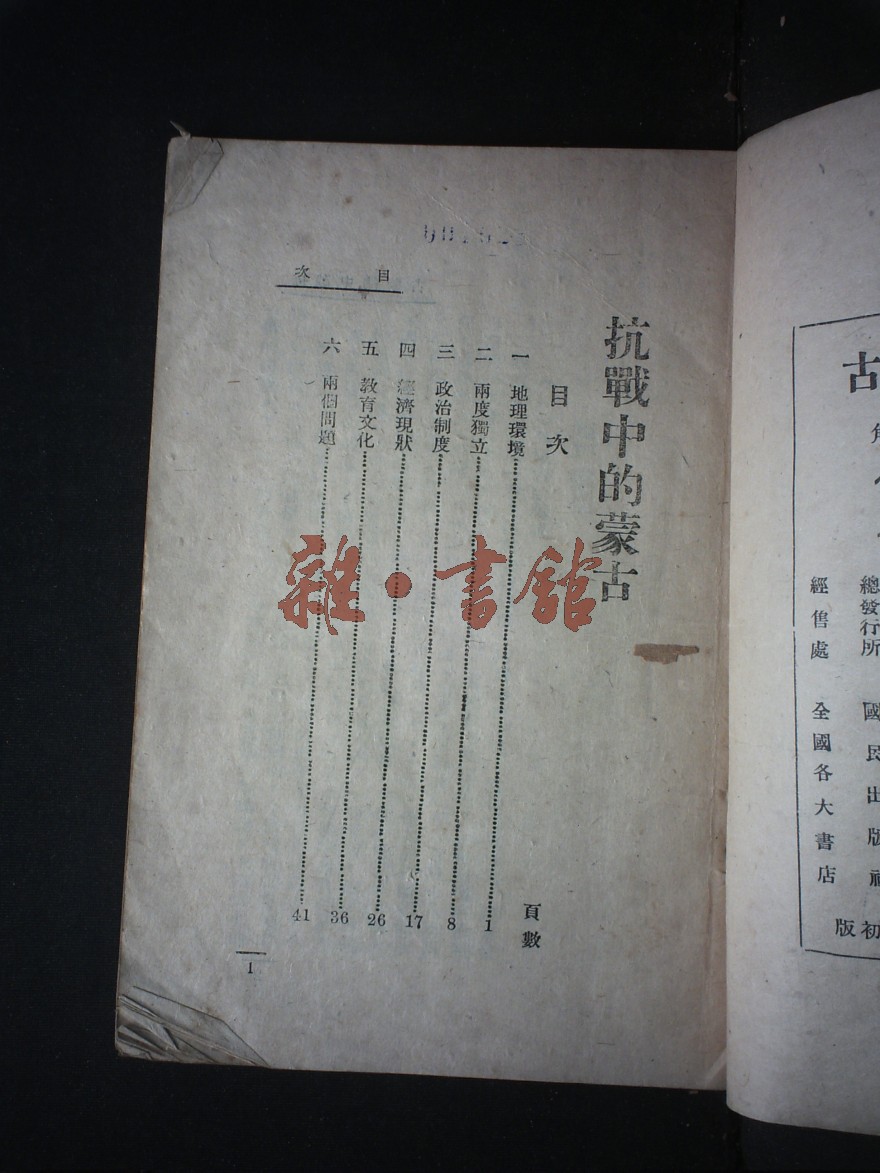 古
總發行所 國民出版
經售處 全國各大書店
初版
抗戰中的蒙古
目次
頁數
一 地理環境 1
二 兩度獨立 8
三 政治制度 17
四 經濟現狀 26
五 教育文化 36
六 兩個問題 41
目次
1
雜·書館